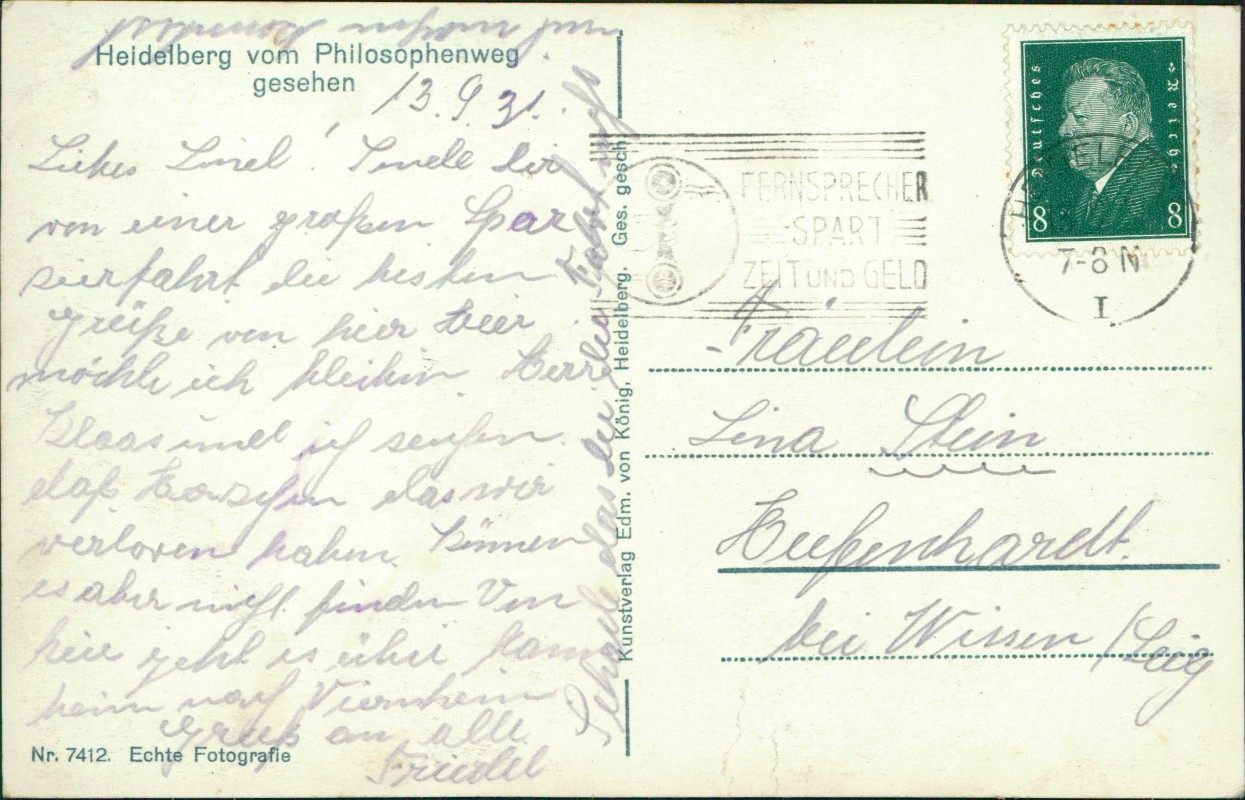 Heidelberg vom Philosophenweg
gesehen
13.9.31.
Liebes Linel! Sende dir
von einer großen Spar
zierfahrt die besten
Grüße von hier Hier
möchte ich bleiben Herr
Klaas und ich suchen
daß Herzchen das wir
verloren haben. Können
es aber nicht finden Von
hier geht es über Mann
heim nach Viernheim
Gruß an alle
Friedel
Schade das du
Nr. 7412. Echte Fotografie
Kunstverlag Edm. von König, Heidelberg. Ges. gesch.
FERNSPRECHER
SPART
ZEIT UND GELD
Deutsches Reich
8 8
7-8 N
I
Fräulein
Lina Stein
bei Wissen /Sieg